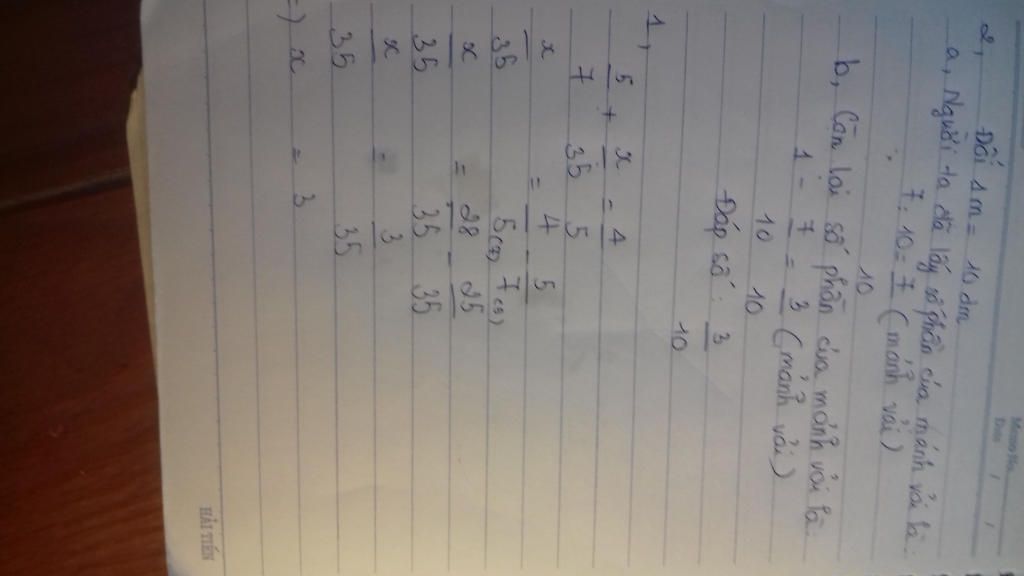 Memo No.
Date / /
2, Đổi 1m = 10 dm
a, Người ta đã lấy số phần của mảnh vải là:
7 : 10 = 7/10 (mảnh vải)
b, Còn lại số phần của mảnh vải là:
1 - 7/10 = 3/10 (mảnh vải)
Đáp số : 3/10
1,
5/7 + x/35 = 4/5
x/35 = 4/5(7) - 5/7(5)
x/35 = 28/35 - 25/35
x/35 = 3/35
=) x = 3
HẢI TIẾN